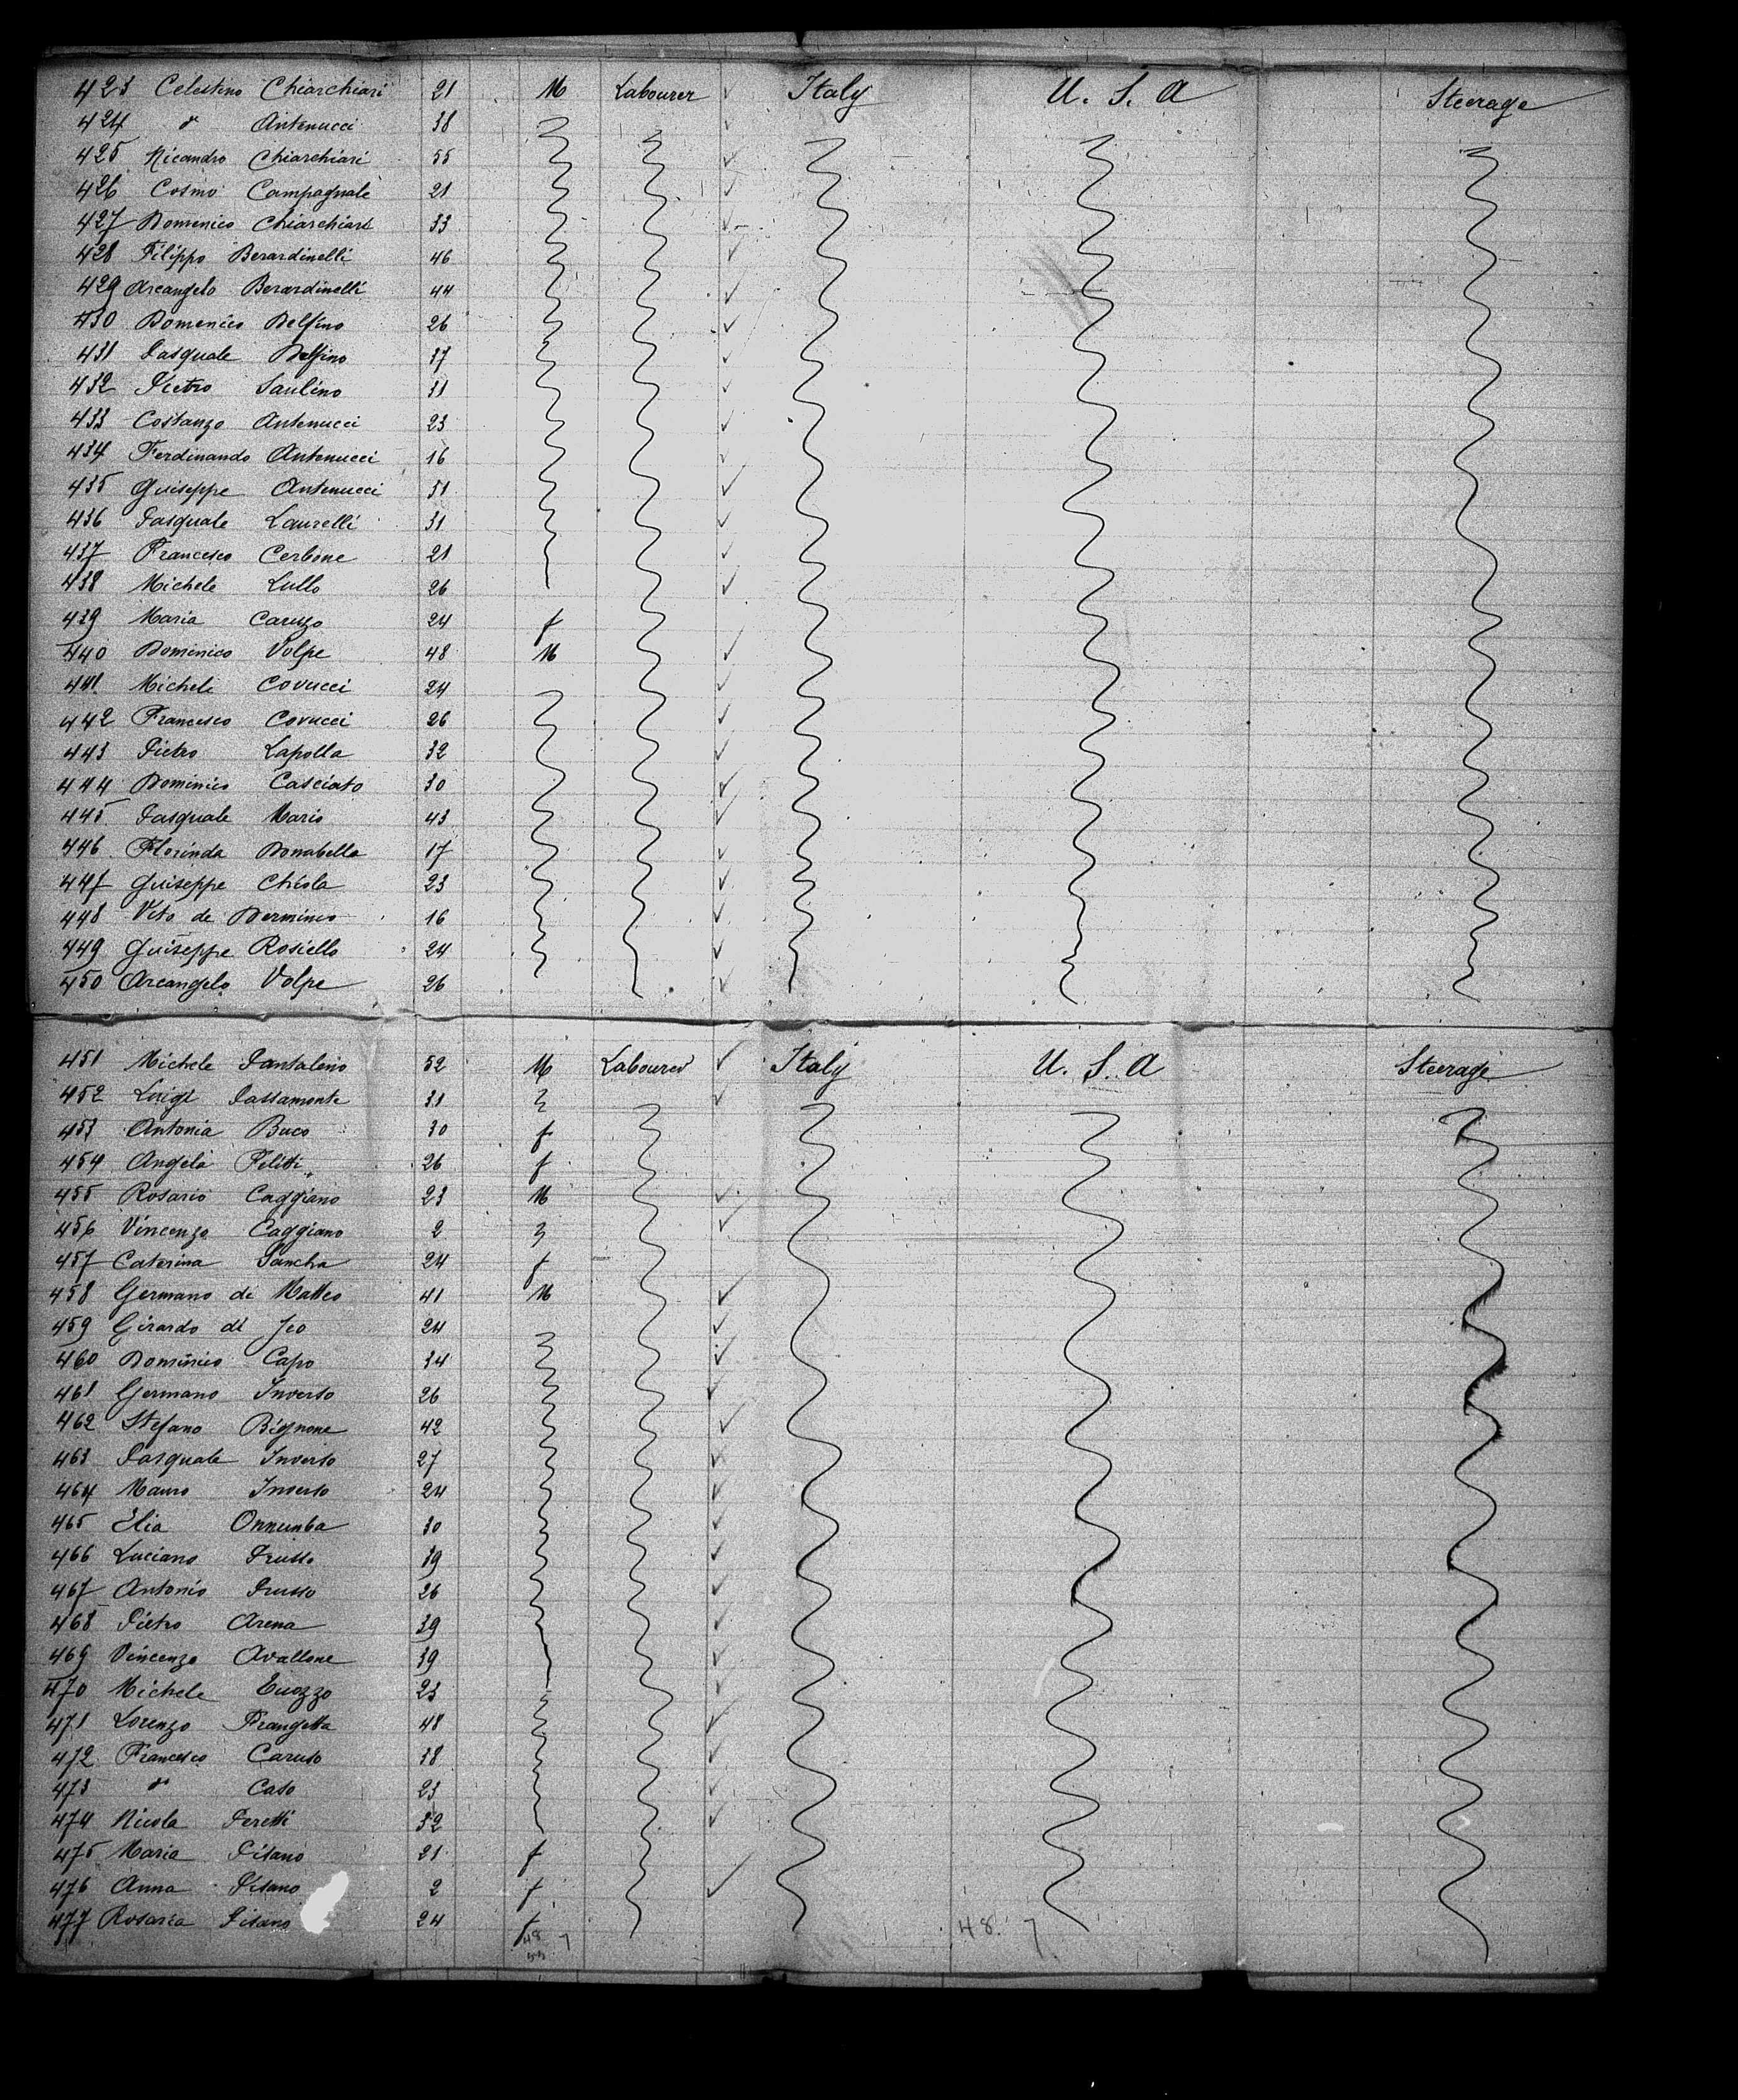 423 Celestino Chiarchiari 21 M Labourer ✓ Italy U. S. A Steerage
424 do Antenucci 38
425 Nicandro Chiarchiari 55 ✓
426 Cosmo Campagnale 21 ✓
427 Domenico Chiarchiari 33 ✓
428 Filippo Berardinelli 46 ✓
429 Arcangelo Berardinelli 44 ✓
430 Domenico Delfino 26 ✓
431 Pasquale Delfino 37 ✓
432 Pietro Saulino 31 ✓
433 Costanzo Antenucci 23 ✓
434 Ferdinando Antenucci 16 ✓
435 Guiseppe Antenucci 51 ✓
436 Pasquale Laurelli 31 ✓
437 Francesco Cerbone 21 ✓
438 Michele Lullo 26 ✓
439 Maria Caruzo 24 f
440 Dominico Volpe 48 M ✓
441 Michele Covucci 24 ✓
442 Francesco Covucci 26 ✓
443 Pietro Lapolla 32 ✓
444 Dominico Casciato 30 ✓
445 Pasquale Mario 43 ✓
446 Florinda Donabella 17 ✓
447 Guiseppe Chiola 23 ✓
448 Vito de Dominico 16 ✓
449 Guiseppe Rosiello 24 ✓
450 Arcangelo Volpe 26 ✓
451 Michele Pantaleno 52 M Labourer ✓ Italy U. S. A Steerage
452 Luigi Passamonte 31 ✓
453 Antonia Buco 30 f
454 Angela Filitti 26 f
455 Rosario Caggiano 23 M ✓
456 Vincenzo Caggiano 2 ✓
457 Caterina Sancha 24 f
458 Germano di Matteo 41 M ✓
459 Girardo di Jeo 24 ✓
460 Dominico Capo 34 ✓
461 Germano Inverso 26 ✓
462 Stefano Bignone 42 ✓
463 Pasquale Inverso 27 ✓
464 Mauro Inverso 24 ✓
465 Elia Onnumba 30 ✓
466 Luciano Prusso 39 ✓
467 Antonio Prusso 26 ✓
468 Pietro Arena 39 ✓
469 Vincenzo Avallone 39 ✓
470 Michele Cuozzo 23 ✓
471 Lorenzo Frangetta 48 ✓
472 Francesco Caruso 38 ✓
473 do Caso 23 ✓
474 Nicola Peretti 32 ✓
475 Maria Pisano 21 f
476 Anna Pisano 2 f ✓
477 Rosaria Pisano 24 f
48 7 48 7